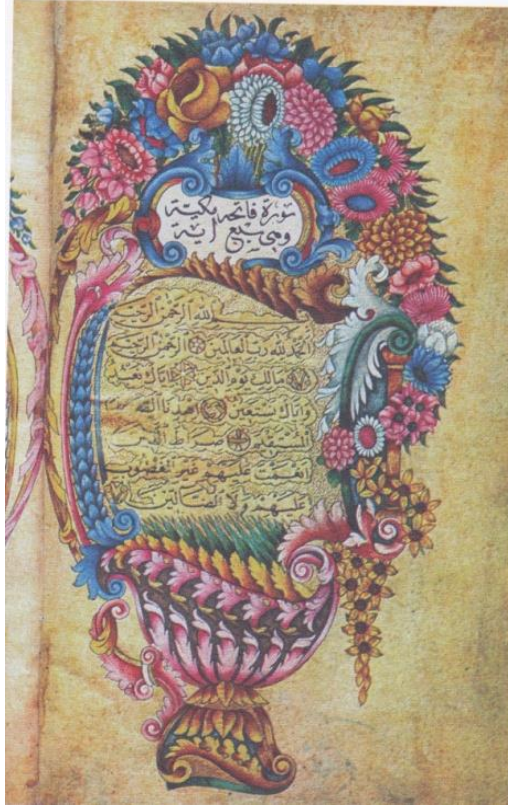 سورة فاتحه مكية
وهي سبع آية
الله الرحمن الرحيم
الحمد لله رب العالمين الرحمن الرحيم
مالك يوم الدين اياك نعبد
واياك نستعين اهدنا الصراط
المستقيم صراط الذين
انعمت عليهم غير المغضوب
عليهم ولا الضالين